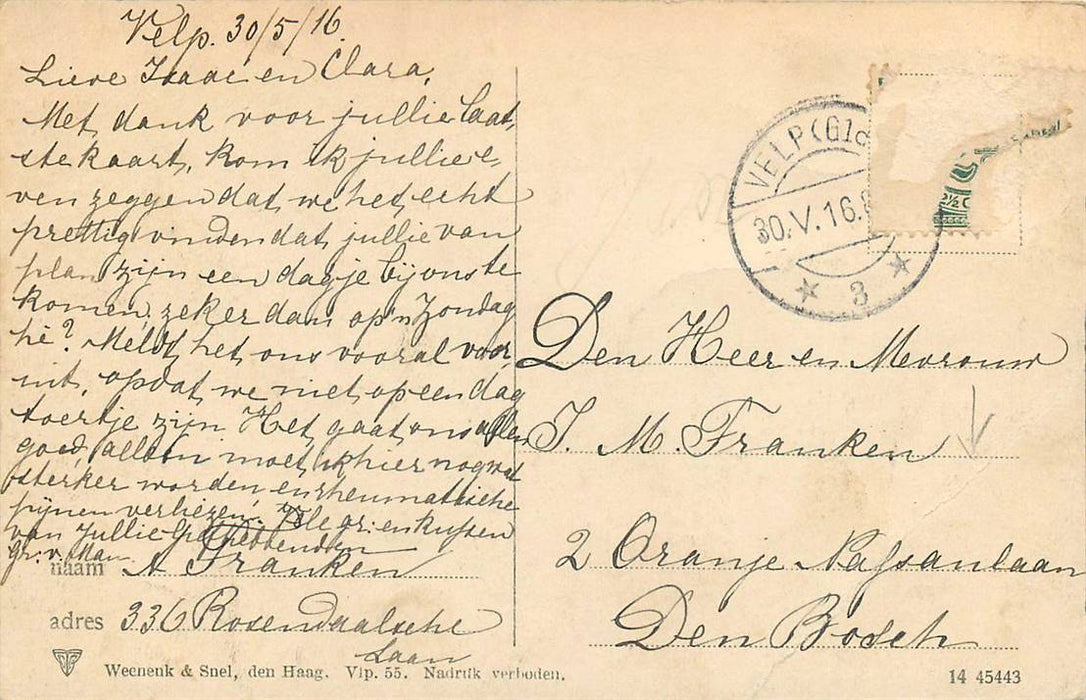 Velp. 30/5/16.
Lieve Isaac en Clara,
Met dank voor jullie laat,
ste kaart, kom ik jullie e,
ven zeggen dat we het echt
prettig vinden dat jullie van
plan zijn een dagje bij ons te
komen, zeker dan op 'n Zondag
hè? Meldt het ons vooral voor,
uit, opdat we niet op een dag
toertje zijn Het gaat ons allen
goed, alleen moet ik hier nog wat
sterker worden en rheumatische
pijnen verliezen. Vele gr: en kussen
van Jullie
gr: v. Man
naam A Franken
adres 336 Rosendaalsche
Laan
Weenenk & Snel, den Haag. Vip. 55. Nadruk verboden.
VELP (Gld
30.V.16.
3
2½ C
Den Heer en Mevrouw
I. M. Franken
2 Oranje Nassaulaan
Den Bosch
14 45443